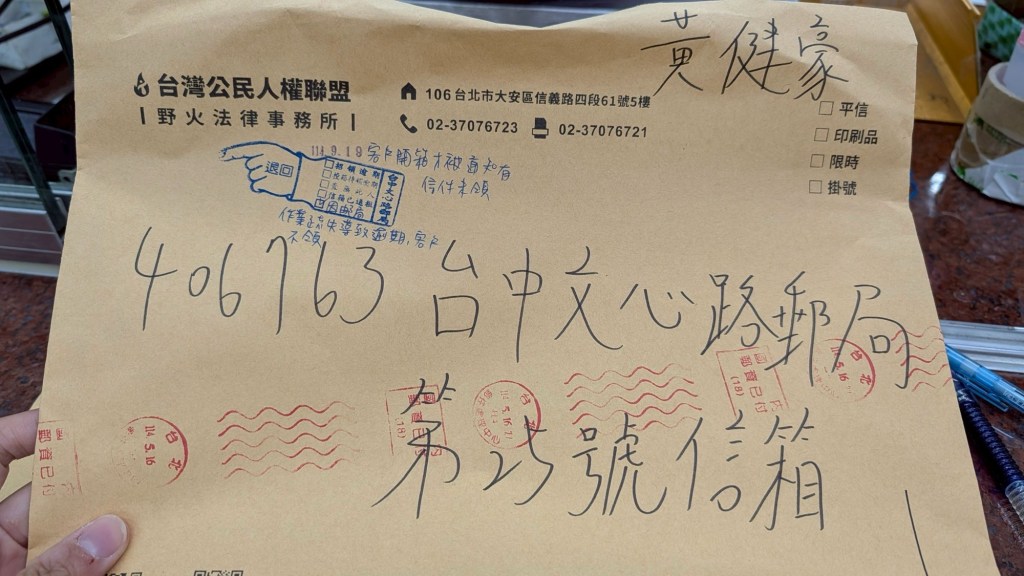 黃健豪
台灣公民人權聯盟
|野火法律事務所|
106台北市大安區信義路四段61號5樓
02-37076723 02-37076721
□平信
□印刷品
□限時
□掛號
114.9.19 客戶開箱才被通知有
信件未領
退回
□招領逾期
台中文心路郵局
因郵局
作業疏失導致逾期,客戶
不領
406763 台中文心路郵局
第25號信箱
國內郵資已付
台北
114.5.16